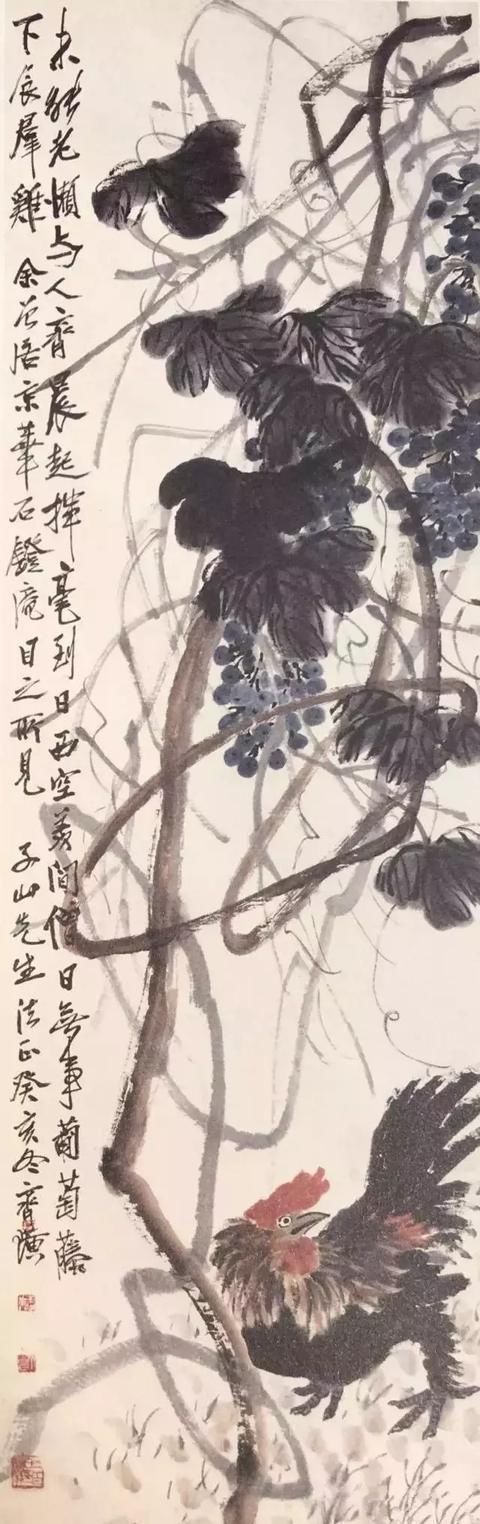 未能老懶与人齊晨起揮毫到日西空羨間僧日無事葡萄藤
下食羣雞 余曾居京華石鐙庵目之所見 子山先生法正癸亥冬齊璜